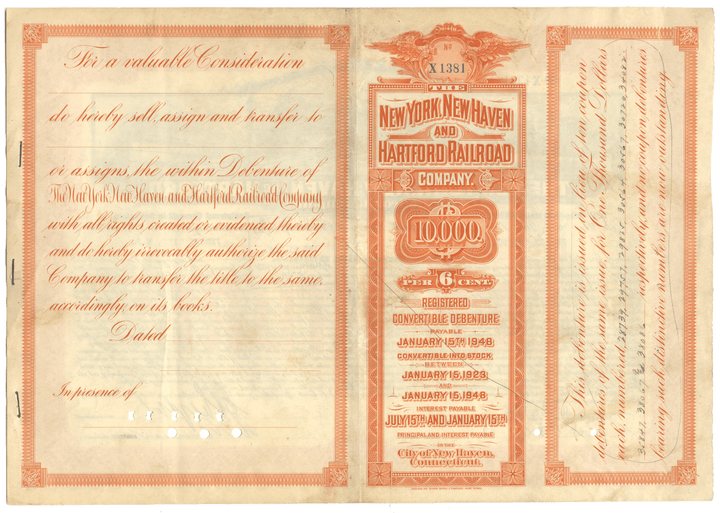 For a valuable Consideration
do hereby sell, assign and transfer to
or assigns, the within Debenture of
The New York, New Haven and Hartford Railroad Company
with all rights created or evidenced thereby
and do hereby irrevocably authorize the said
Company to transfer the title to the same,
accordingly, on its books.
Dated
In presence of
No
X1381
THE
NEW YORK, NEW HAVEN
AND
HARTFORD RAILROAD
COMPANY.
$
10,000.
PER 6 CENT.
REGISTERED
CONVERTIBLE DEBENTURE
PAYABLE
JANUARY 15TH 1948
CONVERTIBLE INTO STOCK
BETWEEN
JANUARY 15, 1923
AND
JANUARY 15, 1948
INTEREST PAYABLE
JULY 15TH AND JANUARY 15TH
PRINCIPAL AND INTEREST PAYABLE
IN THE
City of New Haven,
Connecticut.
This debenture is issued in lieu of ten coupon
debentures of the same issue, for One Thousand Dollars
each, numbered
respectively, and no corresponding debentures
bearing such distinctive numbers are now outstanding.